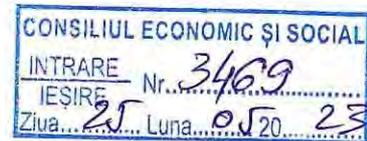 CONSILIUL ECONOMIC ȘI SOCIAL
INTRARE Nr. 3469
IEȘIRE
Ziua.... 25 .... Luna.... 05 20.... 23